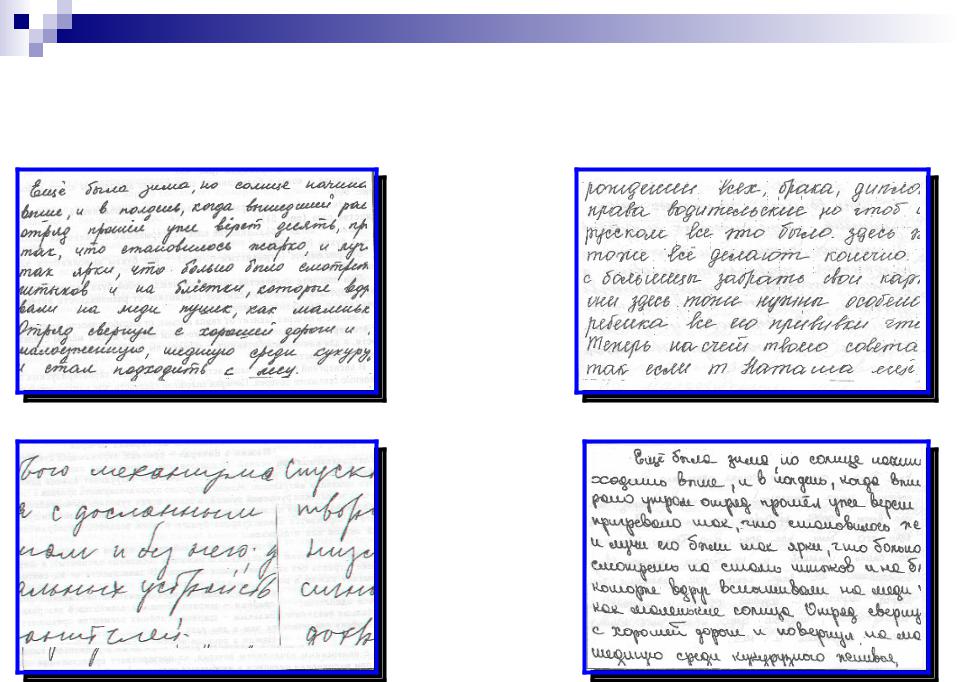 Ещё была зима, но солнце начина
выше, и в полдень, когда вышедший ран
отряд прошёл уже вёрст десять, пр
так, что становилось жарко, и луч
так ярки, что больно было смотреть
штыков и на блёстки, которые вдр
вали на меди пушек, как маленьк
Отряд свернул с хорошей дороги и
малоезженную, шедшую среди кукуру
и стал подходить с лесу.
рождении всех, брака, дипло
права водительские но чтоб
русском все это было. здесь
тоже всё делают конечно.
с больницы забрать свои кар
они здесь тоже нужны особено
ребенка все его прививки эти
Теперь на счёт твоего совета
так если т Наташа ещё
бого механизма Спуск
я с досланным творо
ном и без него. д низо
альных устройств сично
анителей. дохв
Ещё была зима, но солнце начин
ходить выше, и в полдень, когда выш
рано утром отряд прошёл уже верст
пригревало так, что становилось жа
и лучи его были так ярки, что больно
смотреть на стали штыков и на бл
которые вдруг вспыхивали на меди
как маленькие солнца Отряд сверну
с хорошей дороги и повернул на ма
шедшую среди кукурузного жнивья,